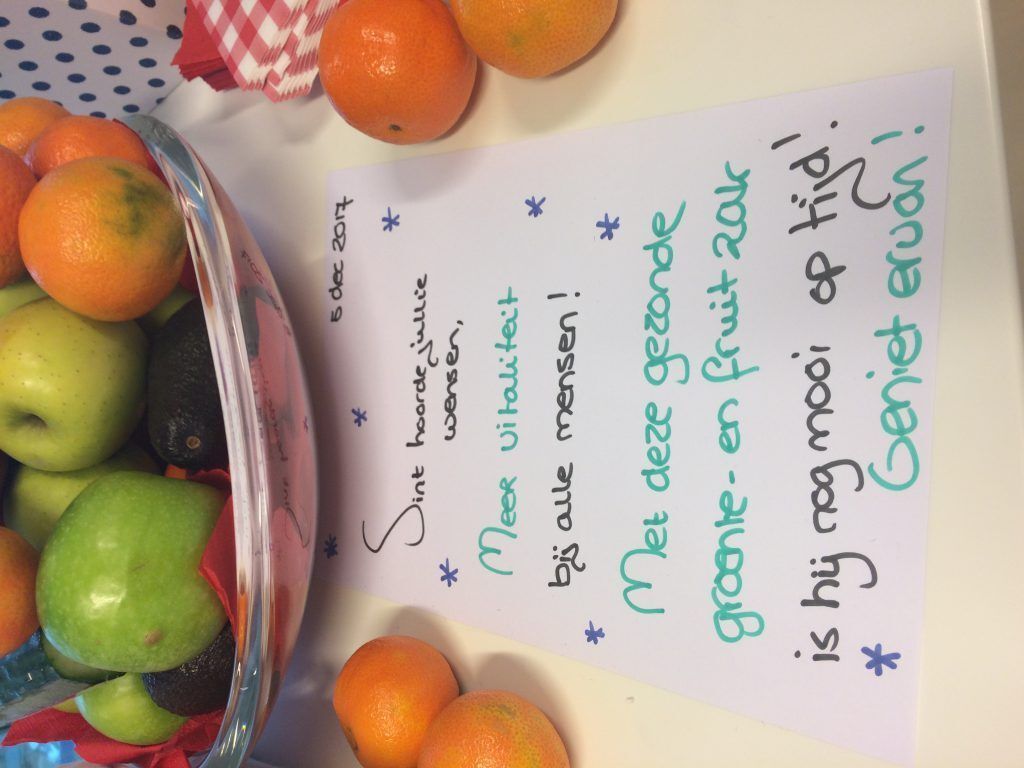 5 dec 2017
Sint hoorde jullie
wensen,
Meer vitaliteit
bij alle mensen!
Met deze gezonde
groente- en fruit zak
is hij nog mooi op tijd!
Geniet ervan!